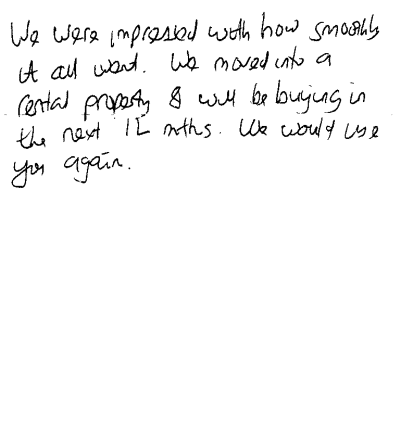 We were impressed with how smoothly
it all went. We moved into a
rental property & will be buying in
the next 12 mths. We would use
you again.